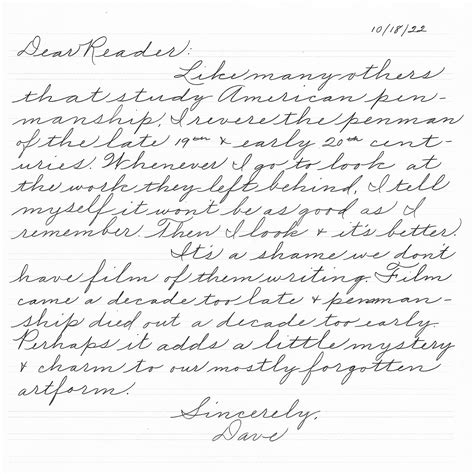 10/18/22
Dear Reader:
Like many others
that study American pen-
manship, I revere the penman
of the late 19th & early 20th cent-
uries. Whenever I go to look at
the work they left behind, I tell
myself it won't be as good as I
remember. Then I look & it's better!
It's a shame we don't
have film of them writing. Film
came a decade too late & penman-
ship died out a decade too early.
Perhaps it adds a little mystery
& charm to our mostly forgotten
artform.
Sincerely,
Dave